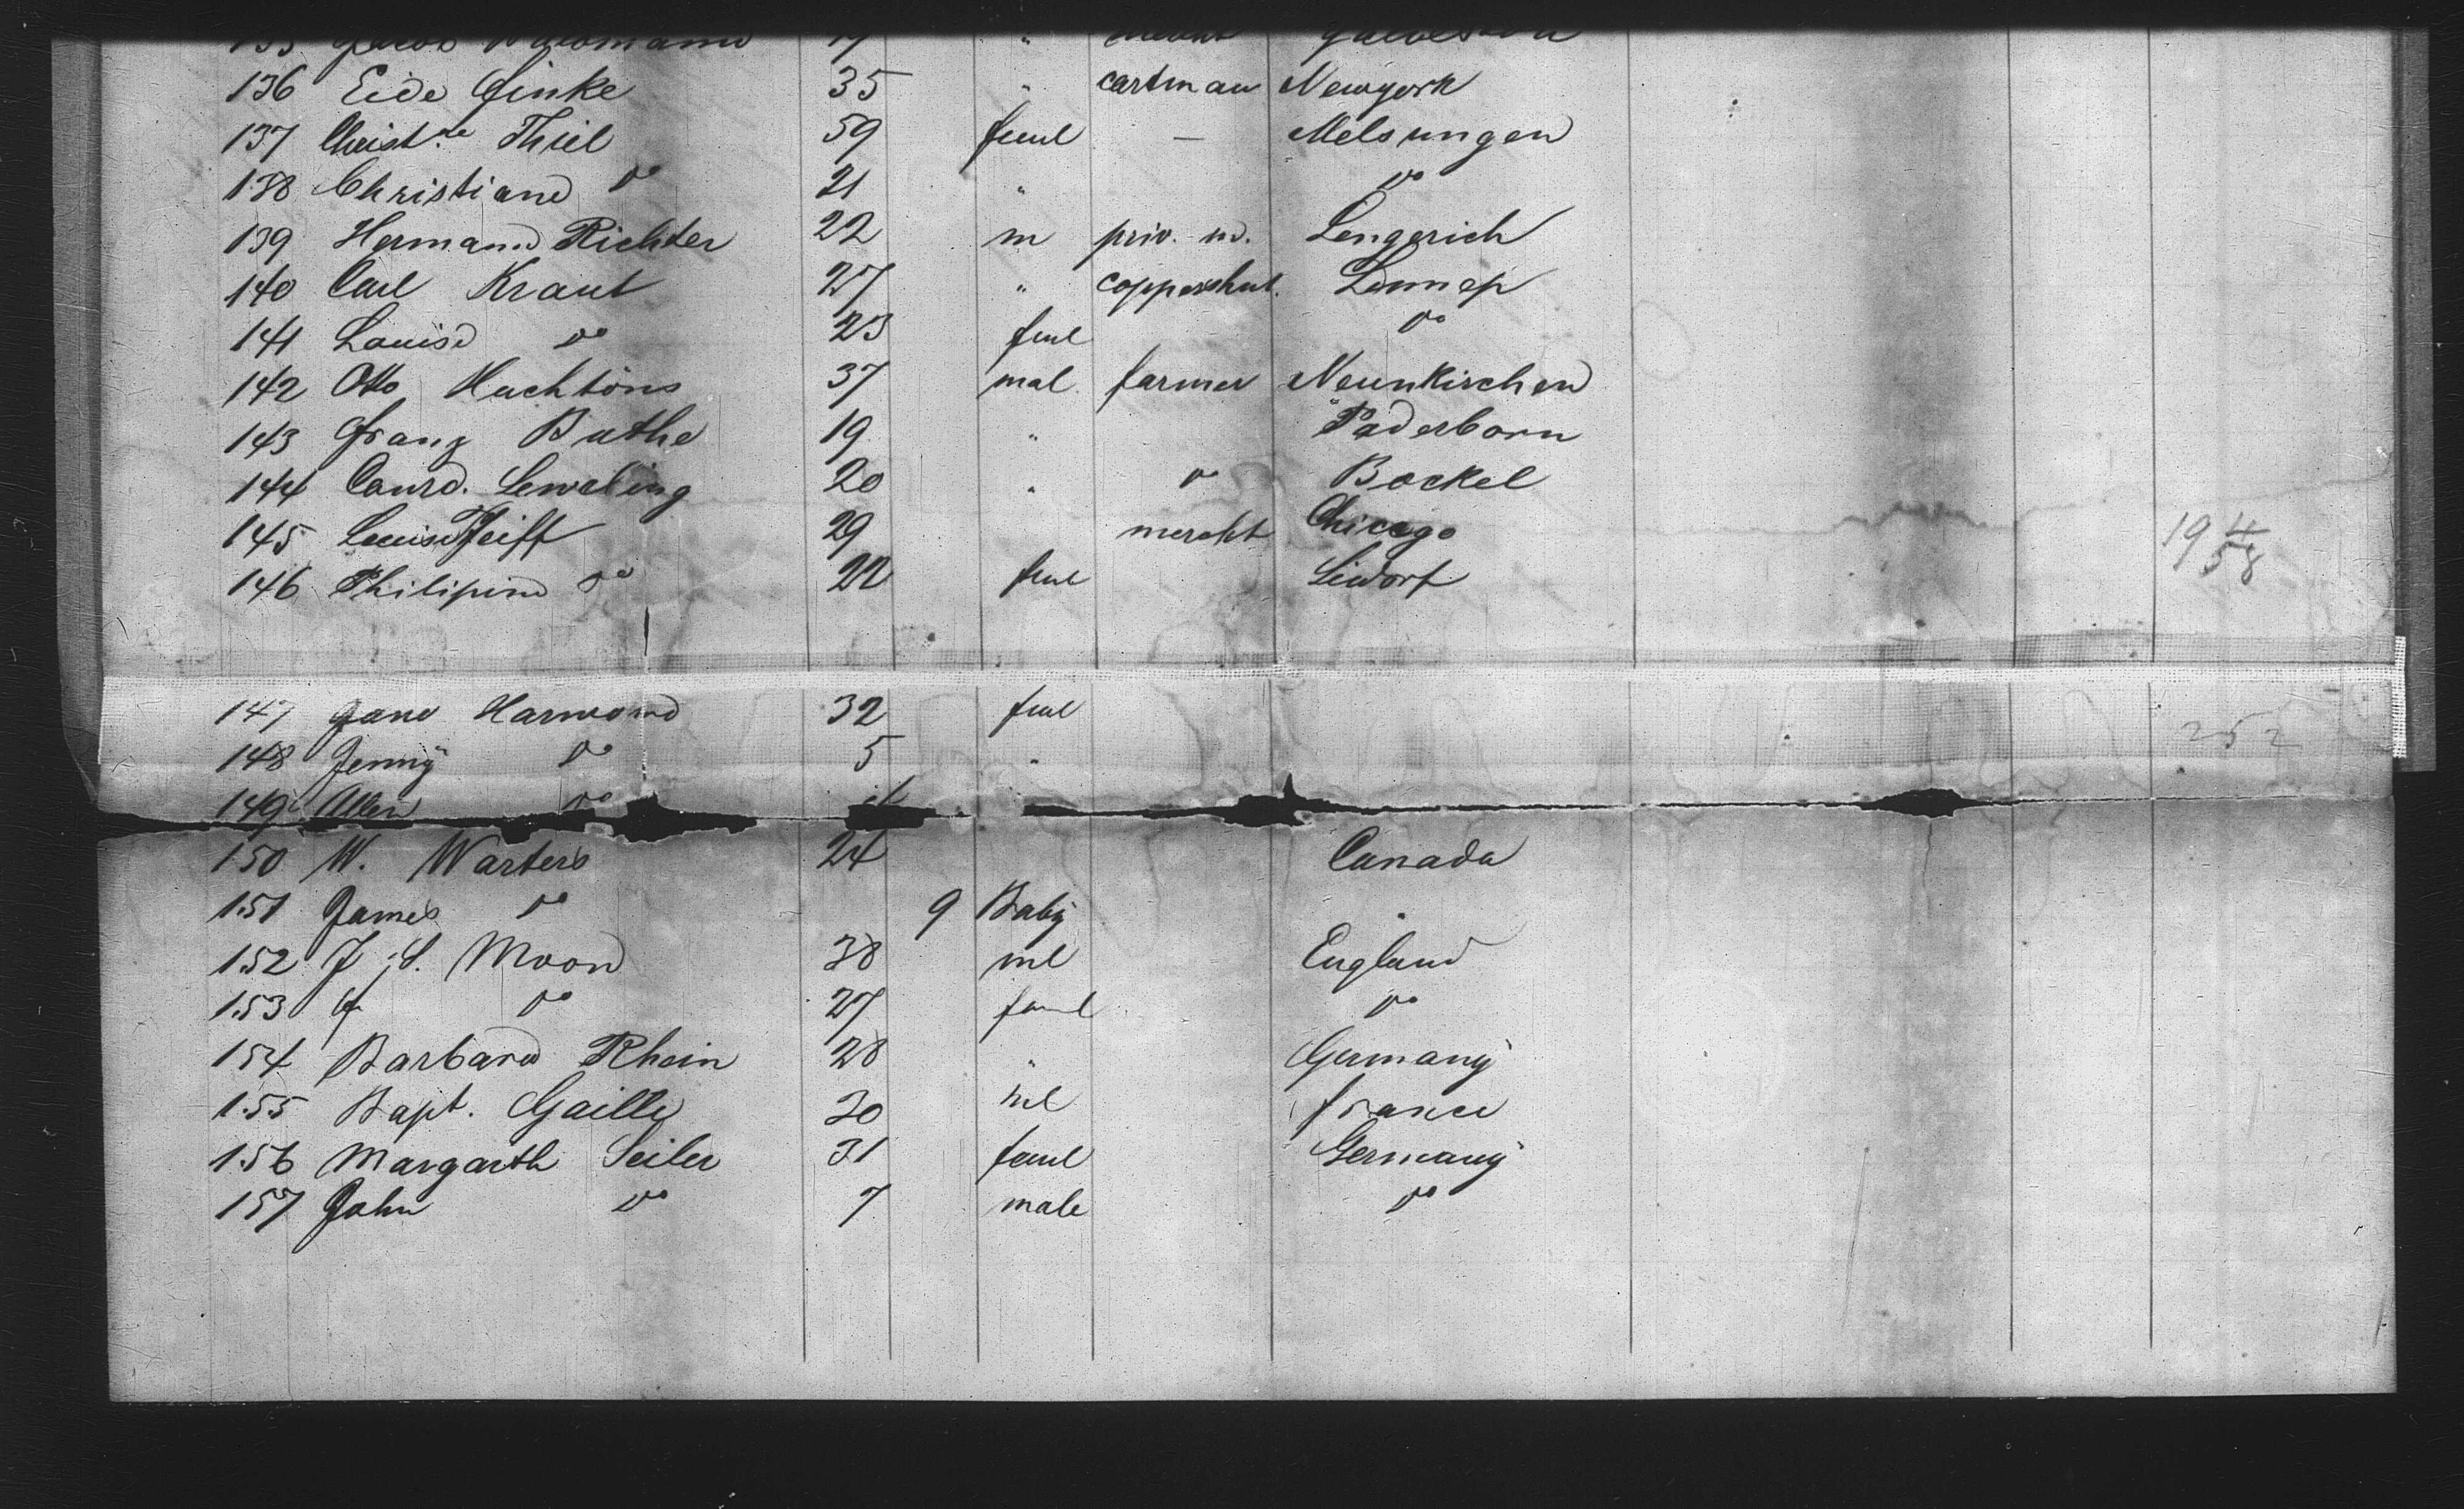 136 Eide Finke 35 " cartman Newyork
137 Christ.ne Thiel 59 feml — Melsungen
138 Christiane do 21 " do
139 Hermann Richter 22 m priv. m. Lengerich
140 Carl Kraut 27 " Lennep
141 Louise do 23 feml do
142 Otto Huchtöns 37 mal farmer Neunkirchen
143 Franz Buthe 19 " Paderborn
144 Conrd. Leweling 20 " do Bockel
145 Louis Pfeiff 29 " mercht Chicago
146 Philipine do 22 feml
19 4/58
147 Jane Harwood 32 feml
148 Jenny do 5 "
252
149 do
150 W. Warters 24 Canada
151 James do 9 Baby "
152 J. S. Moon 38 ml England
153 do 27 feml do
154 Barbara Rhein 28 " Germany
155 Bapt. Gaille 30 ml france
156 Margarth Seiler 31 feml Germany
157 John do 7 male do